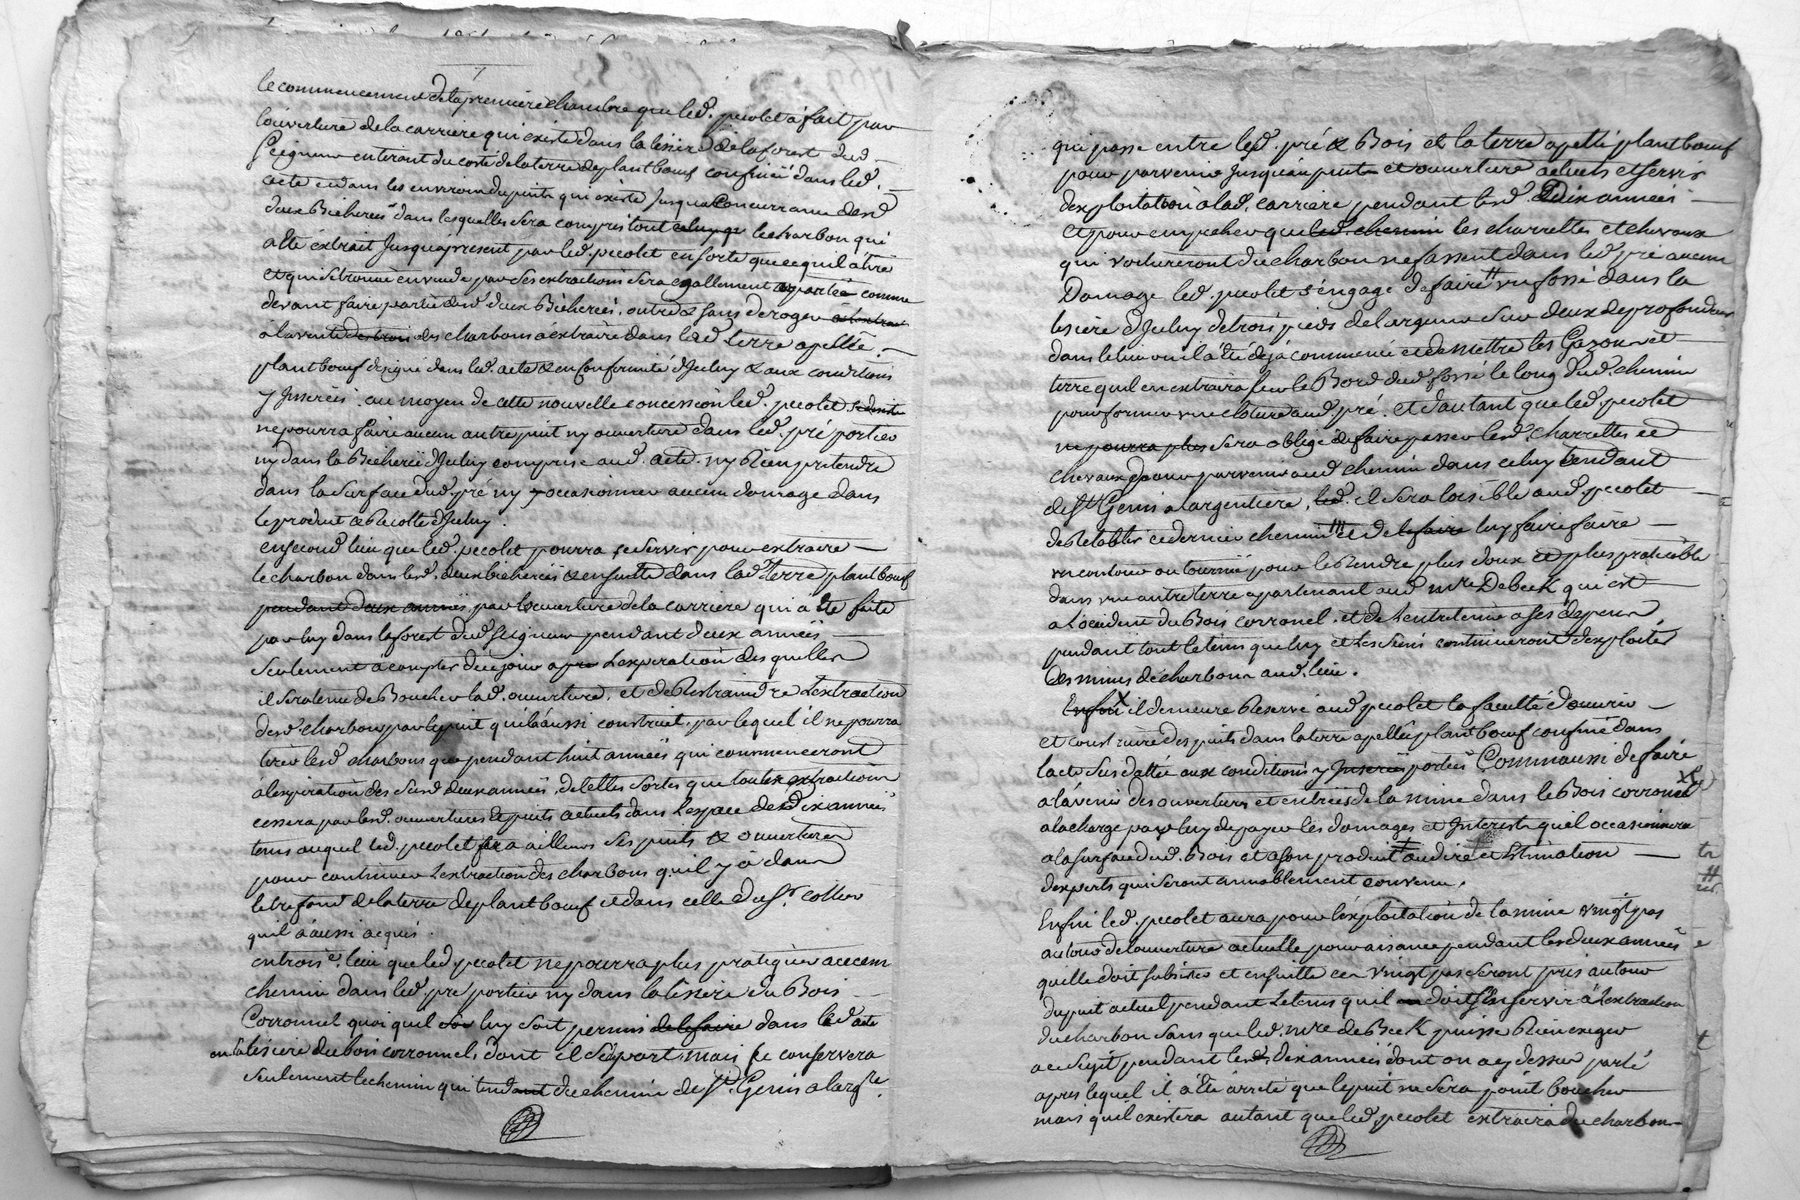 le commencement de la premiere chambre que led. pecolet a fait par
l'ouverture de la carriere qui existe dans la lisiere de la forest dud.
seigneur en tirant du costé de la terre de plant boeuf confiné dans led.
acte et dans les environs du puit qui existe jusqua concurrance desd.
deux Bicherées dans lesquelles sera compris tout celuy qe le charbon qui
a été extrait jusqua present par led. pecolet en sorte que ce quil a tiré
et qui se trouve en vuide par ses extractions sera egallement comme
devant faire partie desd. deux Bicherées, outre & sans deroger
a la vente des charbons a extraire dans lad. terre apellée
plant boeuf designé dans led. acte & en conformité d'Iceluy & aux conditions
y Inserées. au moyen de cette nouvelle concession led. pecolet
ne pourra faire aucun autre puit ny ouverture dans led. pré portier
ny dans la Bicherée d'Iceluy comprise aud. acte. ny Rien pretendre
dans la surface dud. pré ny y occasionner aucun domage dans
le produit & Recolte d'Iceluy.
en second lieu que led. pecolet pourra se servir pour extraire
le charbon dans lesd. deux bicherées & ensuitte dans lad. Terre plant boeuf
pendant deux années par l'ouverture de la carriere qui a été faite
par luy dans la forest dud. seigneur pendant deux années
seulement a compter de ce jour apres l'expiration desquelles
il sera tenu de Boucher lad. ouverture. et de Restraindre l'extraction
desd. charbons par le puit quil a aussi construit, par lequel il ne pourra
tirer lesd. charbons que pendant huit années qui commenceront
a l'expiration des susd. deux années, de telles sortes que toutes extractions
cessera par lesd. ouvertures & puits actuels dans l'espace desd. dix années
tems auquel led. pecolet fera ailleurs ses puits & ouvertures
pour continuer l'extraction des charbons qu'il y a dans
le trefond de la terre de plant boeuf et dans celle du sr. collier
quil a aussi acquis.
en troise. lieu que led. pecolet ne pourra plus pratiquer aucun
chemin dans led. pré portier ny dans la lisiere du Bois
Corronnel quoi quil luy soit permis de le faire dans led. acte
en la lisiere du bois corronnel, dont il se depart, mais se conservera
seulement le chemin qui tendant du chemin de St. Genis a largre.
qui passe entre led. pré & Bois et la terre apellé plant boeuf
pour parvenir jusqu'au puit et ouverture actuels et servir
d'exploitation a lad. carriere pendant lesd. Dix années
et pour empecher que led. chemin les charrettes et chevaux
qui voitureront du charbon ne fassent dans led. pré aucun
Domage led. pecolet s'engage de faire # un fossé dans la
lisiere d'Iceluy de trois pieds de largeur sur deux de profondeur
dans le lieu ou il a été déjà commencé et de mettre les Gazons et
terre quil en extraira sur le Bord dud. fossé le long dud. chemin
pour former une cloture aud. pré. et d'autant que led. pecolet
ne pourra plus sera obligé de faire passer lesd. charrettes et
chevaux pour parvenir aud. chemin dans celuy tendant
de St. Genis a largentiere, led. il sera loisible aud. pecolet
de Retablir ce dernier chemin et de le faire luy faire faire
un contour ou tournée pour le Rendre plus doux et plus praticable
dans une autre terre apartenant aud. mre. De beck qui est
a l'occident du Bois corronel. et de l'entretenir a ses depens
pendant tout le tems que luy et Les siens continueront d'exploiter
Des mines de charbon aud. lieu.
Enfin il demeure Reservé aud. pecolet la faculté d'ouvrir
et construire des puits dans la terre apellée plant boeuf confiné dans
l'acte susdatté aux conditions y Inserées portées Comm'aussi de faire
a l'avenir des ouvertures et entrées de la mine dans le Bois corronel
a la charge par luy de payer les domages et Interests quil occasionnera
a la surface dud. Bois et a son produit au dire et Estimation
d'experts qui seront amiablement convenu.
Enfin led. pecolet aura pour l'exploitation de la mine vingt pas
autour de l'ouverture actuelle pour aisance pendant les deux années
quelle doit subsister et ensuitte ces vingt pas seront pris autour
du puit actuel pendant le tems quil doit s'en servir a l'extraction
du charbon sans que led. mre. de Beck puisse Rien exiger
a ce sujet pendant lesd. dix années dont on a cy dessus parlé
apres lequel il a été arreté que le puit ne sera point boucher
mais quil existera autant que led. pecolet extraira du charbon